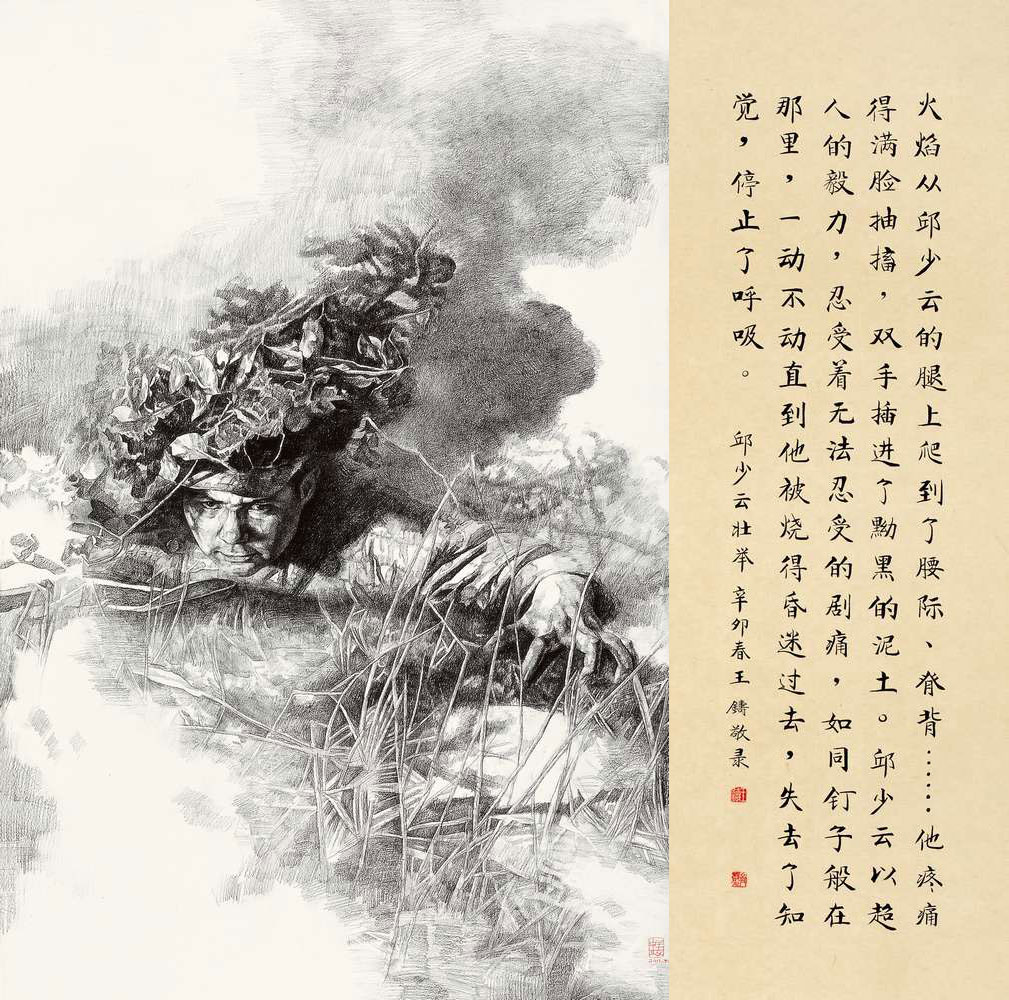 火焰从邱少云的腿上爬到了腰际、脊背……他疼痛
得满脸抽搐，双手插进了黝黑的泥土。邱少云以超
人的毅力，忍受着无法忍受的剧痛，如同钉子般在
那里，一动不动直到他被烧得昏迷过去，失去了知
觉，停止了呼吸。
邱少云壮举 辛卯春王鑄敬录